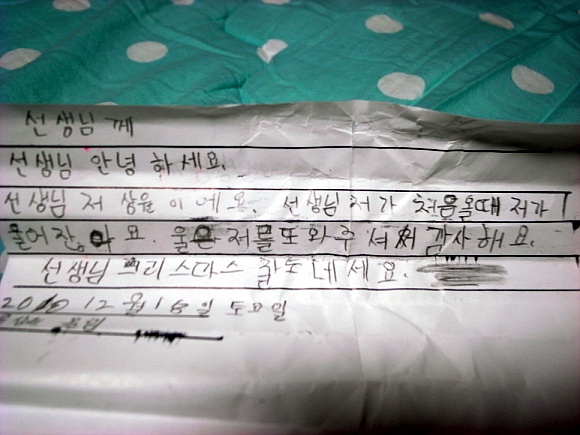 선생님 께
선생님 안녕 하세요.
선생님 저 상율 이에요. 선생님 저가 처음올때 저가
울어잖아요. 울 저믈도와주셔서 감사해요.
선생님 크리스마스 잘보네세요.
2010 12월 18일 토요일